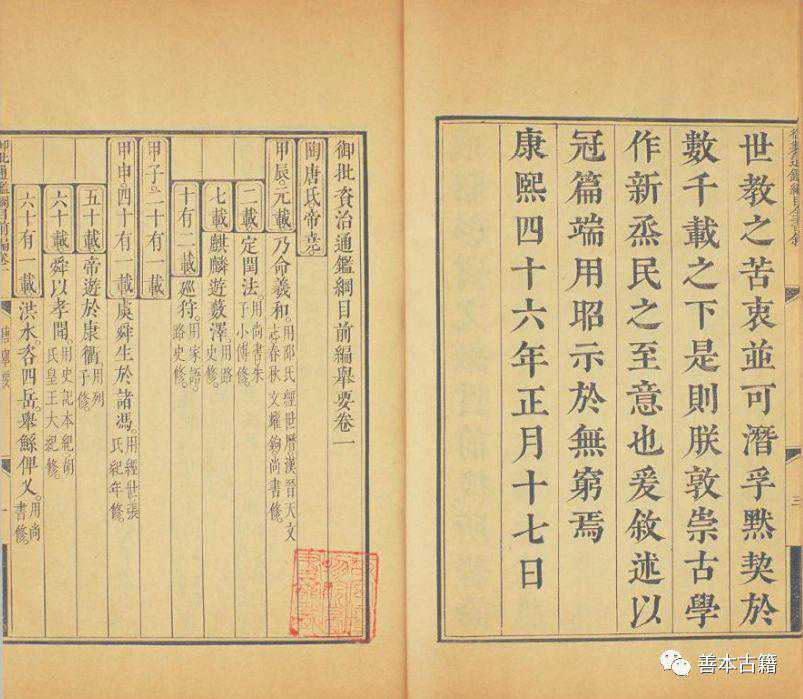 世教之苦衷並可潛孚默契於
數千載之下是則朕敦崇古學
作新烝民之至意也爰敘述以
冠篇端用昭示於無窮焉
康熙四十六年正月十七日
三
御批資治通鑑綱目前編舉要卷一
陶唐氏帝堯
甲辰元載乃命羲和用邵氏經世曆漢晉天文志春秋文耀鉤尚書修
二載定閏法用尚書朱子小傳修
七載麒麟遊藪澤用路史修
十有二載廵狩用家語路史修
甲子二十有一載
甲申四十有一載虞舜生於諸馮用經世張氏紀年修
五十載帝遊於康衢用列子修
六十載舜以孝聞用史記本紀胡氏皇王大紀修
六十有一載洪水咨四岳舉鯀俾乂用尚書修
御批通鑑綱目前編卷一
一
善本古籍